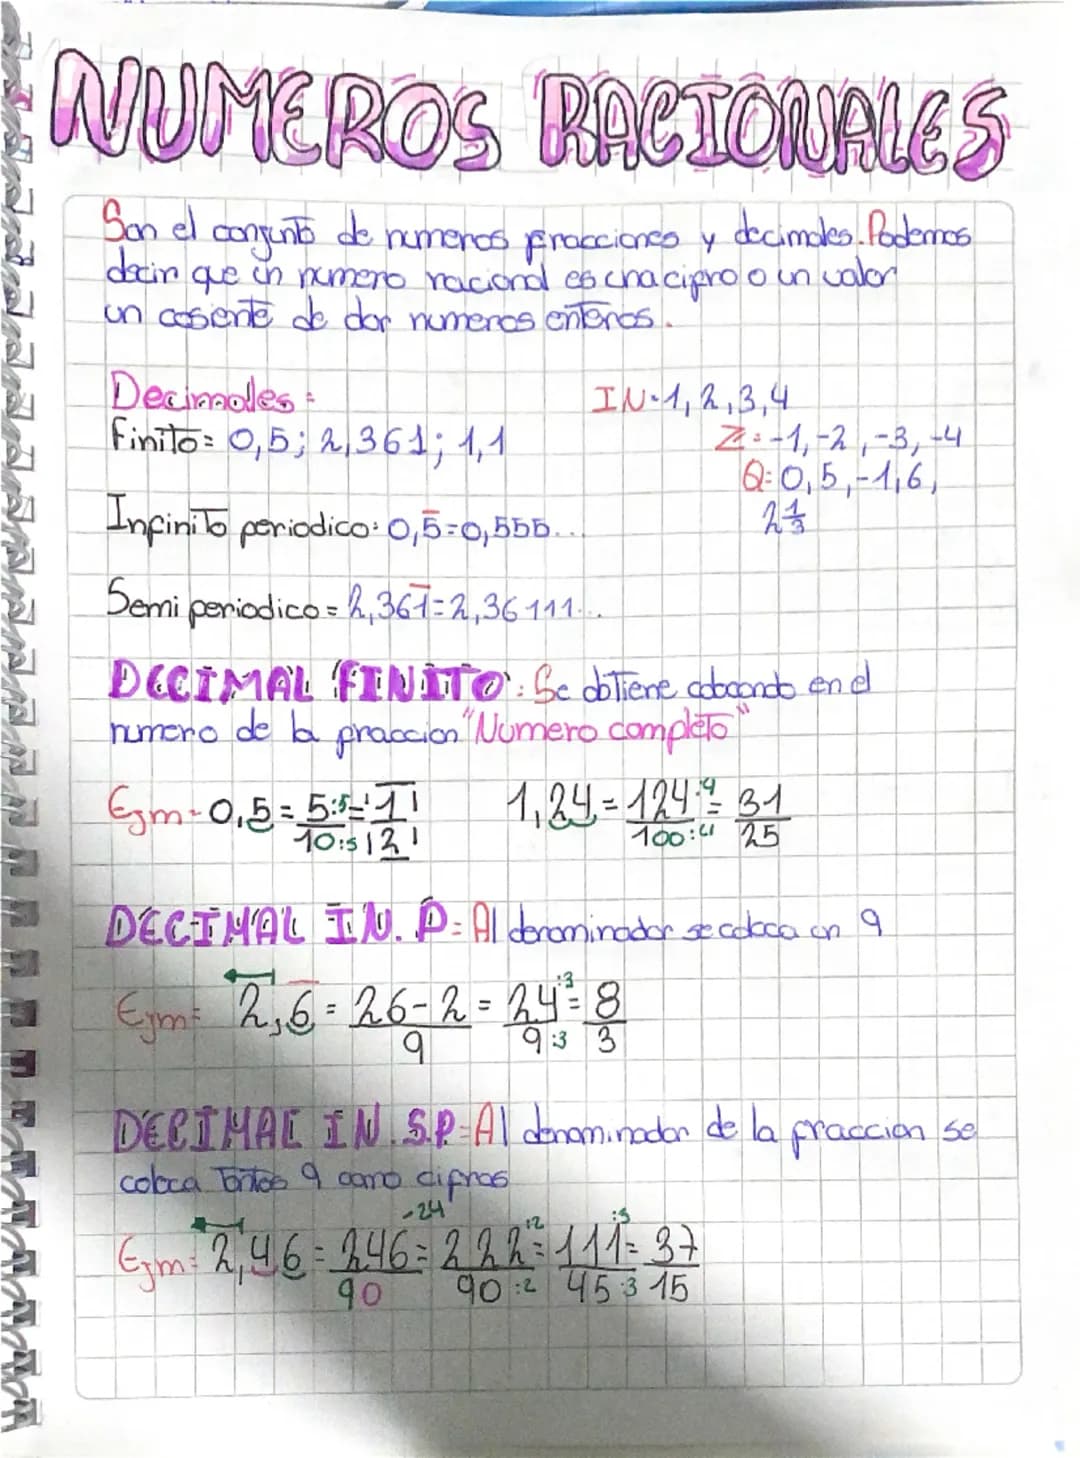 NUMEROS RACIONALES
Son el conjunto de numeros fracciones y decimales. Podemos
decir que un numero racional es una cifra o un valor
un cosiente de dor numeros enteros.
Decimales:
Finito= 0,5; 2,361; 1,1
IN·1,2,3,4
Z:-1,-2,-3,-4
Q:0,5,-1,6,
2 1/3
Infinito periodico: 0,5̅=0,555...
Semi periodico = 2,361̅=2,36111...
DECIMAL FINITO: Se obtiene colocando en el
numero de la fraccion "Numero completo"
Ejm- 0,5 = 5:5/10:5 = 1/2 1,24 = 124:4/100:4 = 31/25
DECIMAL IN. P= Al denominador se coloca un 9
Ejm= 2,6̅ = 26-2/9 = 24:3/9:3 = 8/3
DECIMAL IN.S.P=Al denominador de la fraccion se
coloca tantos 9 como cifras
Ejm= 2,46 = 246-24/90 = 222:2/90:2 = 111:3/45:3 = 37/15